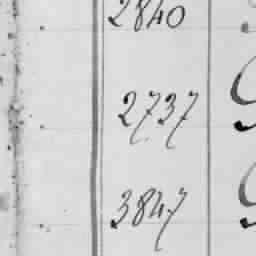 2840
2737
3847